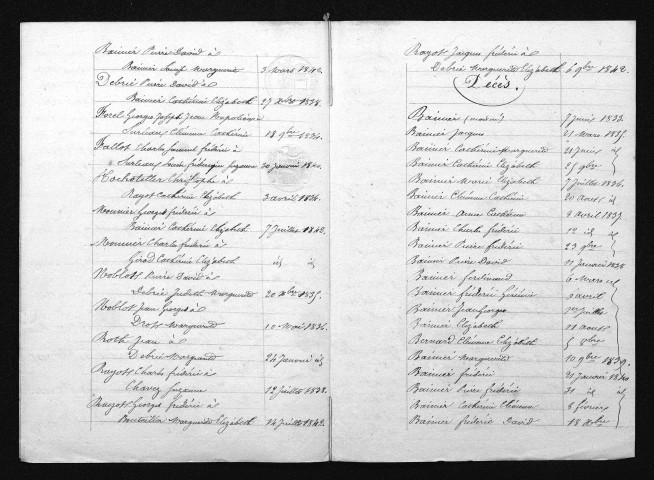 Bainier Pierre David à
Bainier Marguerite 3 Mars 1842.
Debrie Pierre David à
Bainier Catherine Elizabeth 27 Xbre 1838.
Forel Georges Joseph Jean
Surleaux Eléonore Catherine 18 9bre 1834.
Fallot Charles Samuel frédéric à
Surleaux Suzanne 30 Janvier 1840.
Hochstetter Christophe à
Rayot Catherine Elizabeth 3 avril 1834.
Mounier Georges frédéric à
Bainier Catherine Elizabeth 7 Juillet 1842.
Mounier Charles frédéric à
Girod Catherine Elizabeth id id
Noblot Pierre David à
Debrie Judith Marguerite 20 Xbre 1835.
Noblot Jean Georges à
Droz Marguerite 10 Mai 1836.
Roth Jean à
Debrie Marguerite 24 Janvier id
Rayot Charles frédéric à
Chavey Suzanne 12 Juillet 1838.
Rayot Georges frédéric à
Bouteiller Marguerite Elizabeth 14 Juillet 1842.
Rayot Jacques frédéric à
Debrie Marguerite Elizabeth 6 9bre 1842.
Décès.
Bainier 7 Juin 1833.
Bainier Jacques 21 Mars 1835.
Bainier Catherine Marguerite 21 Juin id
Bainier Catherine Elizabeth 25 9bre
Bainier Marie Elizabeth 7 Juillet 1836.
Bainier Eléonore Catherine 20 Aout id
Bainier Anne Catherine 9 Avril 1837.
Bainier Charles frédéric 12 id id
Bainier Pierre frédéric 23 9bre
Bainier Pierre David 21 Janvier 1838
Bainier ferdinand 6 Mars id
Bainier frédéric 9 avril
Bainier Jean Georges Juillet
Bainier Elizabeth 21 aout
Bernard Eléonore Elizabeth 5 Xbre
Bainier Marguerite 10 9bre 1839.
Bainier frédéric 21 Janvier 1840
Bainier Pierre frédéric 31 id id
Bainier Catherine Eléonore 8 février
Bainier frédéric David 18 Xbre